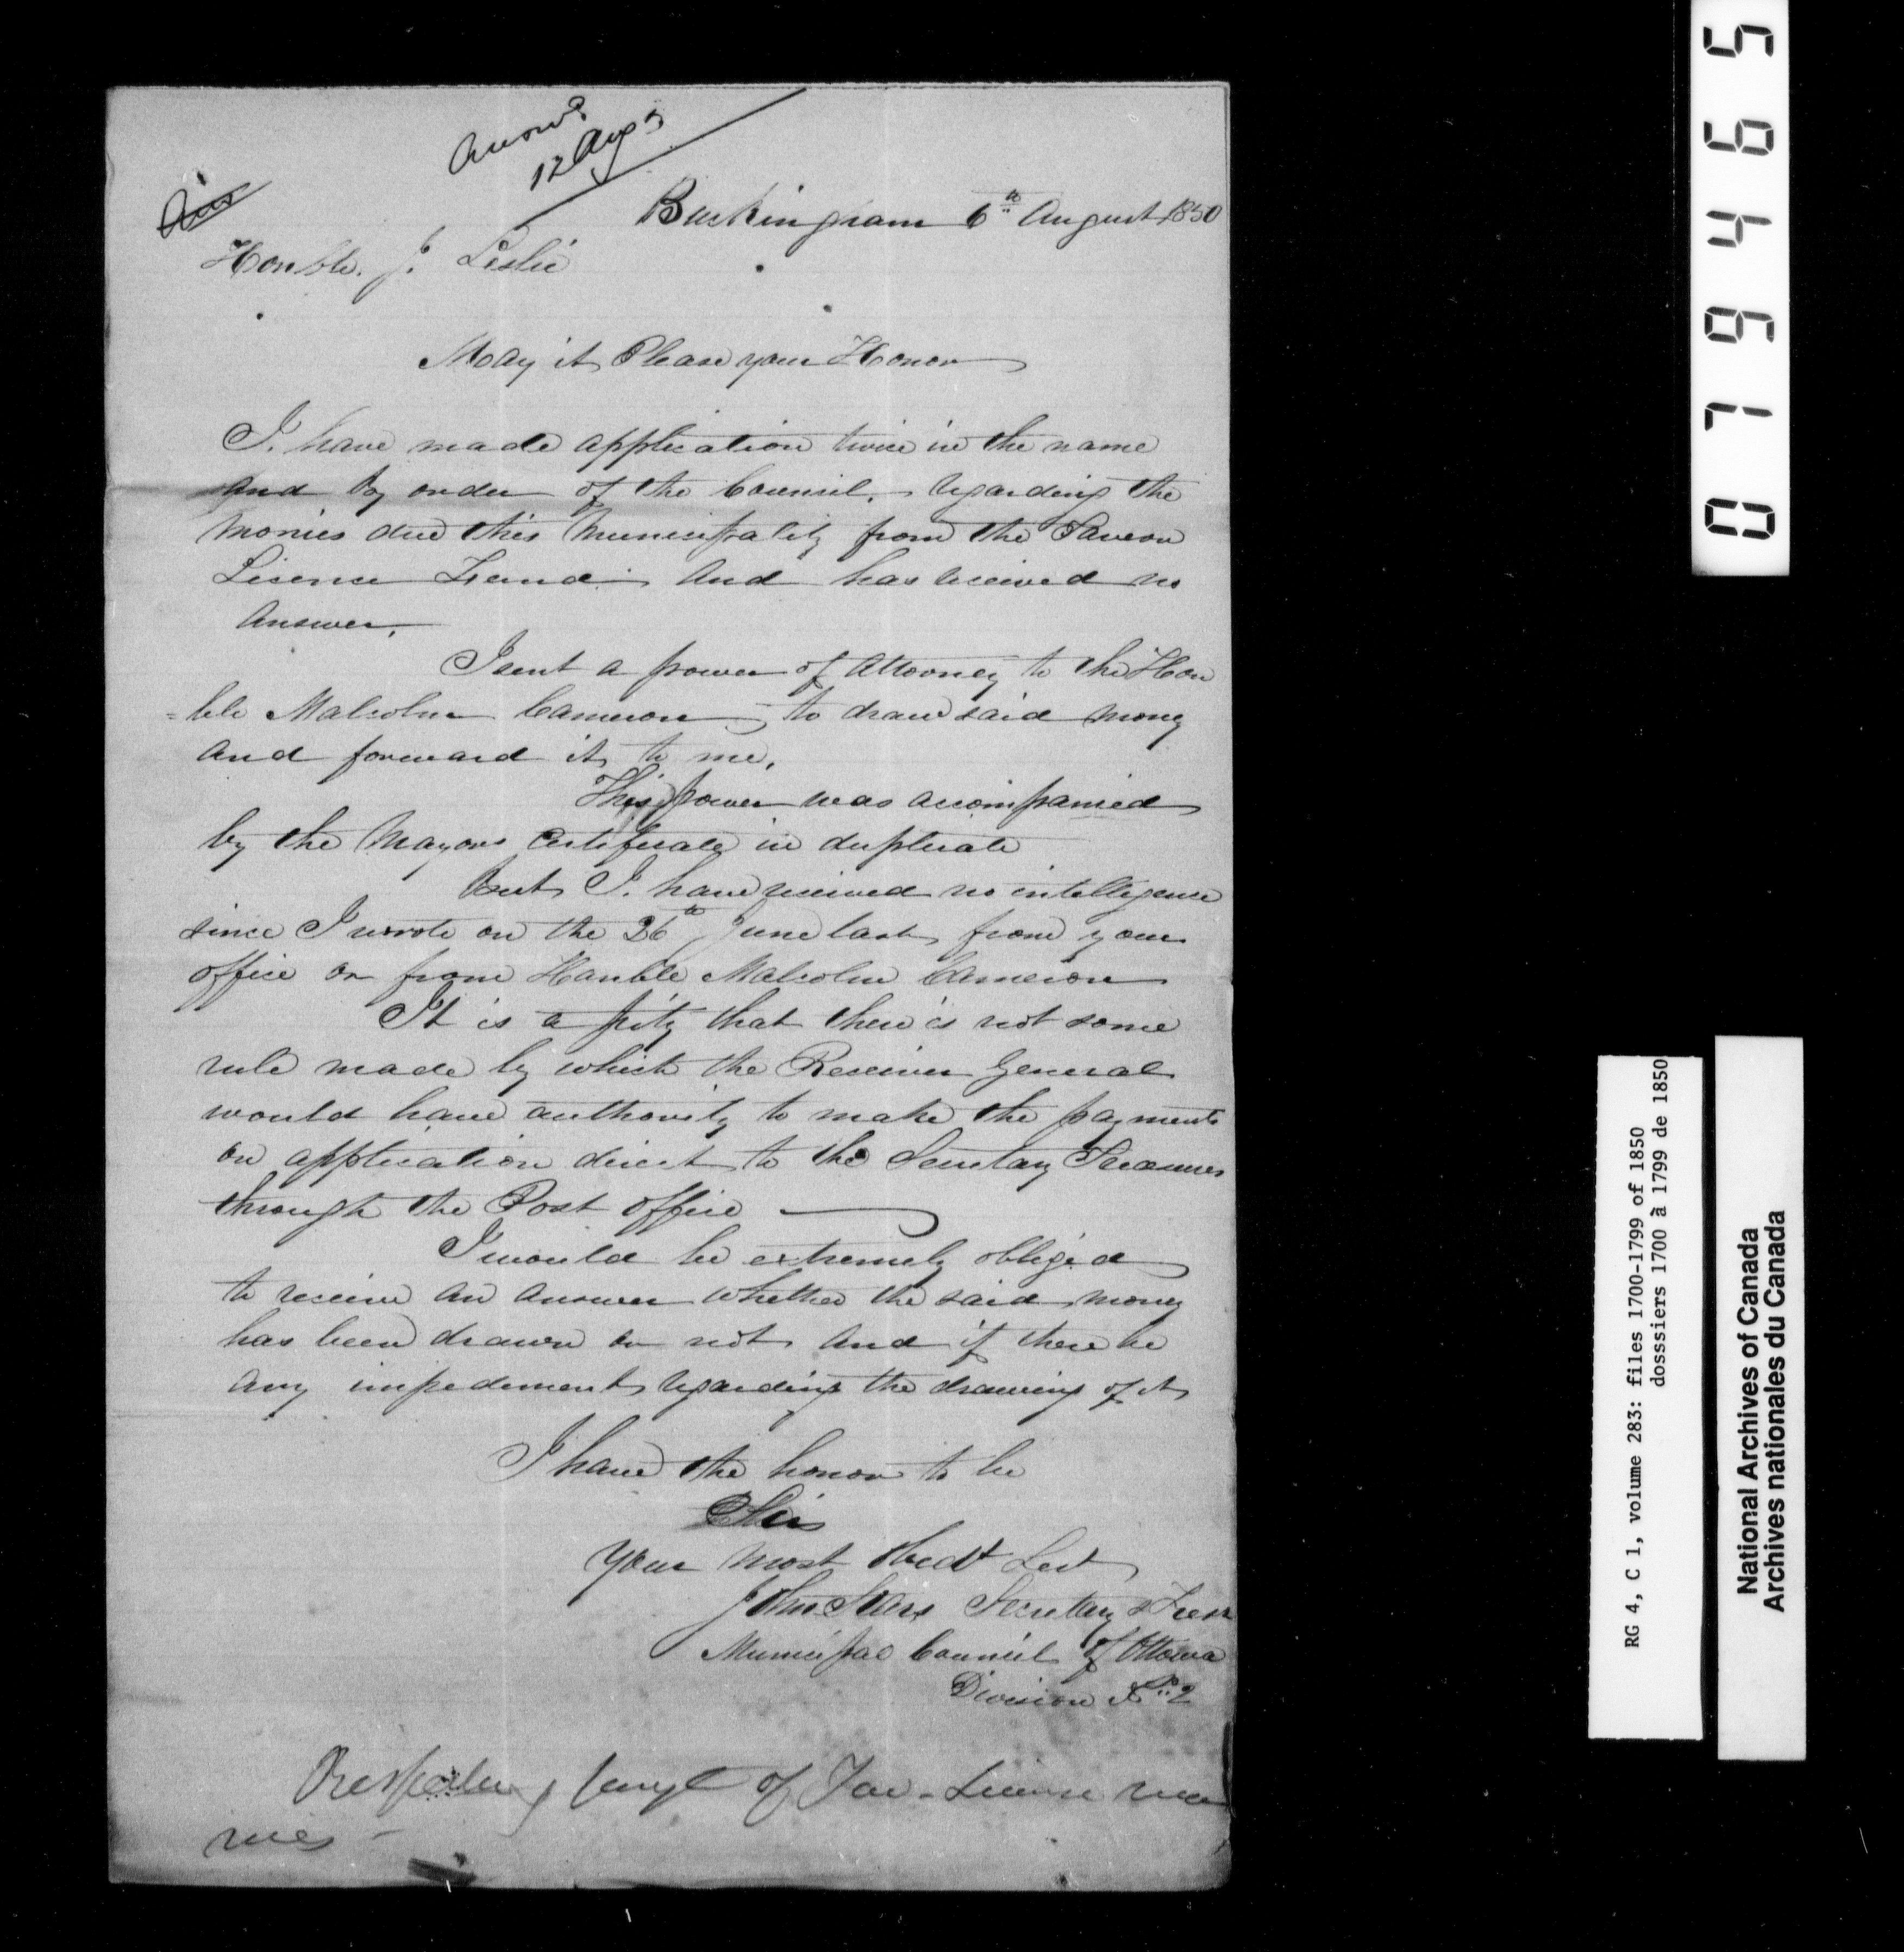 Answd
12 Augt
Ans
Buckingham 6th August 1850
Honble. J. Leslie
May it Please your Honor
I. have made application twice in the name
and by order of the Counsil. regarding the
monies due this Municipality from the Tavern
Lisence Fund. And has received no
Answer.
I sent a power of Attorney to the Hon
=ble Malcolm Cameron to draw said mony
And forward it to me.
This power was accompanied
by the Mayors Certificate in duplicate
But I. have received no intelligence
since I wrote on the 26th June last, from your
office or from Honble Malcolm Cameron
It is a pity that there is not some
rule made by which the Receiver General
would have authority to make the payments
on application direct to the Secretary Treasurer
through the Post office
I would be extremely obliged
to receive an answer whether the said money
has been drawn or not And if there be
any impediment regarding the drawing of it
I have the honor to be
Sir
Your most Obedt Sert
John Stars Secretary & Treasr
Municipal Council of Ottawa
Division No. 2
Respecting of Tav. License mo
nies -
079465
RG 4, C 1, volume 283: files 1700-1799 of 1850
dosssiers 1700 à 1799 de 1850
National Archives of Canada
Archives nationales du Canada